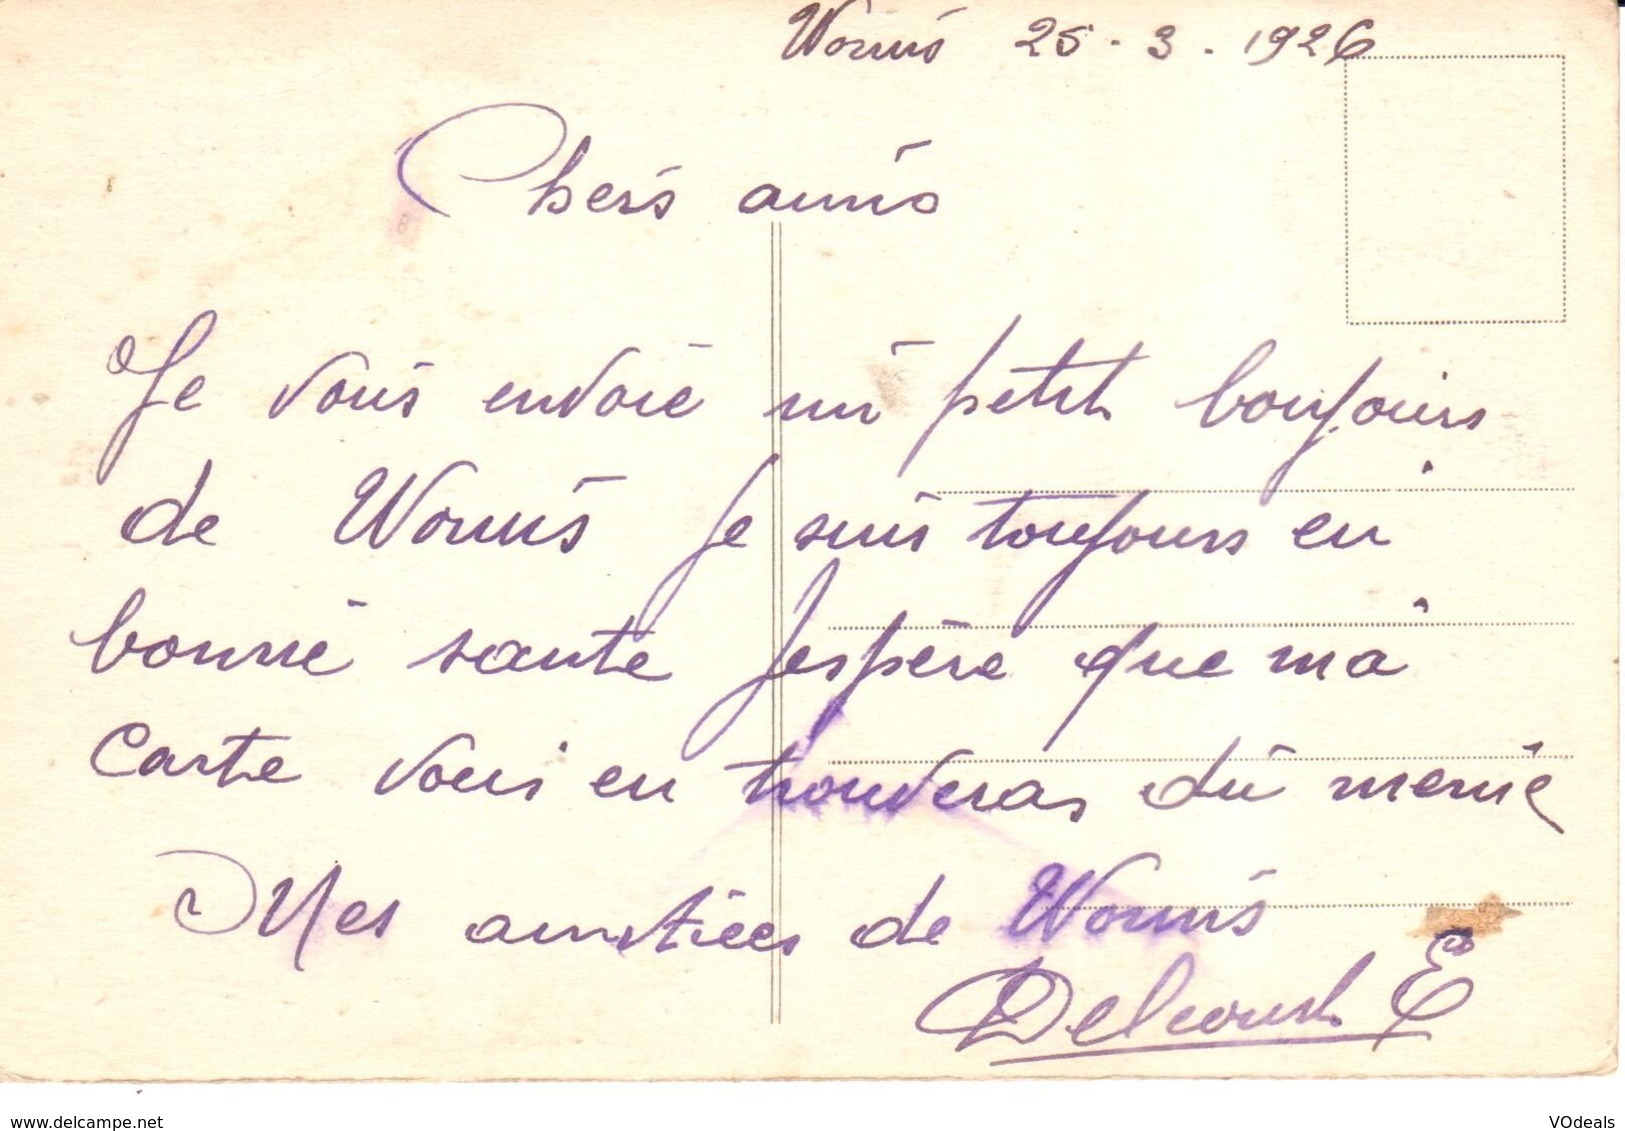 Worms 25-3-1926
Chers amis
Je vous envoie un petit boujours
de Worms Je suis toujours en
bonne sante Jespère que ma
Carte vous en trouveras du meme
Mes amitiees de Worms
Delcourt E
www.delcampe.net
VOdeals